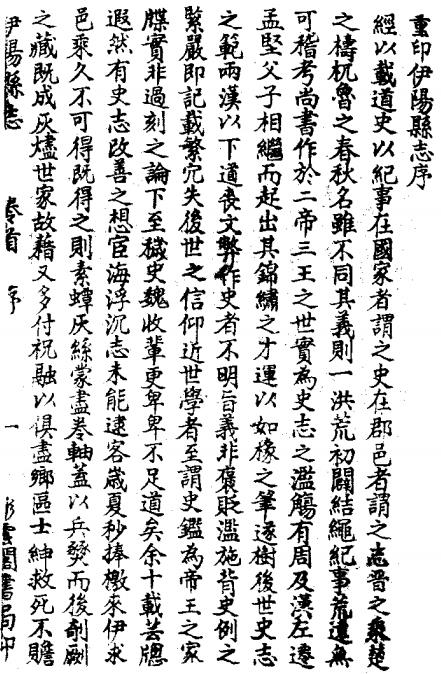 重印伊陽縣志序
經以載道史以紀事在國家者謂之史在郡邑者謂之志晋之乘楚
之檮杌魯之春秋名雖不同其義則一洪荒初闢結繩紀事荒遠無
可稽考尚書作於二帝三王之世實為史志之濫觴有周及漢左遷
孟堅父子相繼而起出其錦繡之才運以如椽之筆遂樹後世史志
之範兩漢以下道喪文弊作史者不明旨義非褒貶濫施背史例之
緊嚴即記載繁宂失後世之信仰近世學者至謂史鑑為帝王之家
牒實非過刻之論下至穢史魏收輩更卑卑不足道矣余十載芸牕
遐然有史志改善之想宦海浮沉志未能逮客歲夏秒捧檄來伊求
邑乘久不可得既得之則素蟫灰絲蒙盡卷軸蓋以兵燹而後剞劂
之藏既成灰燼世家故藉又多付祝融以俱盡鄉區士紳救死不贍
伊陽縣志 卷首 序 一 雲閣書局印